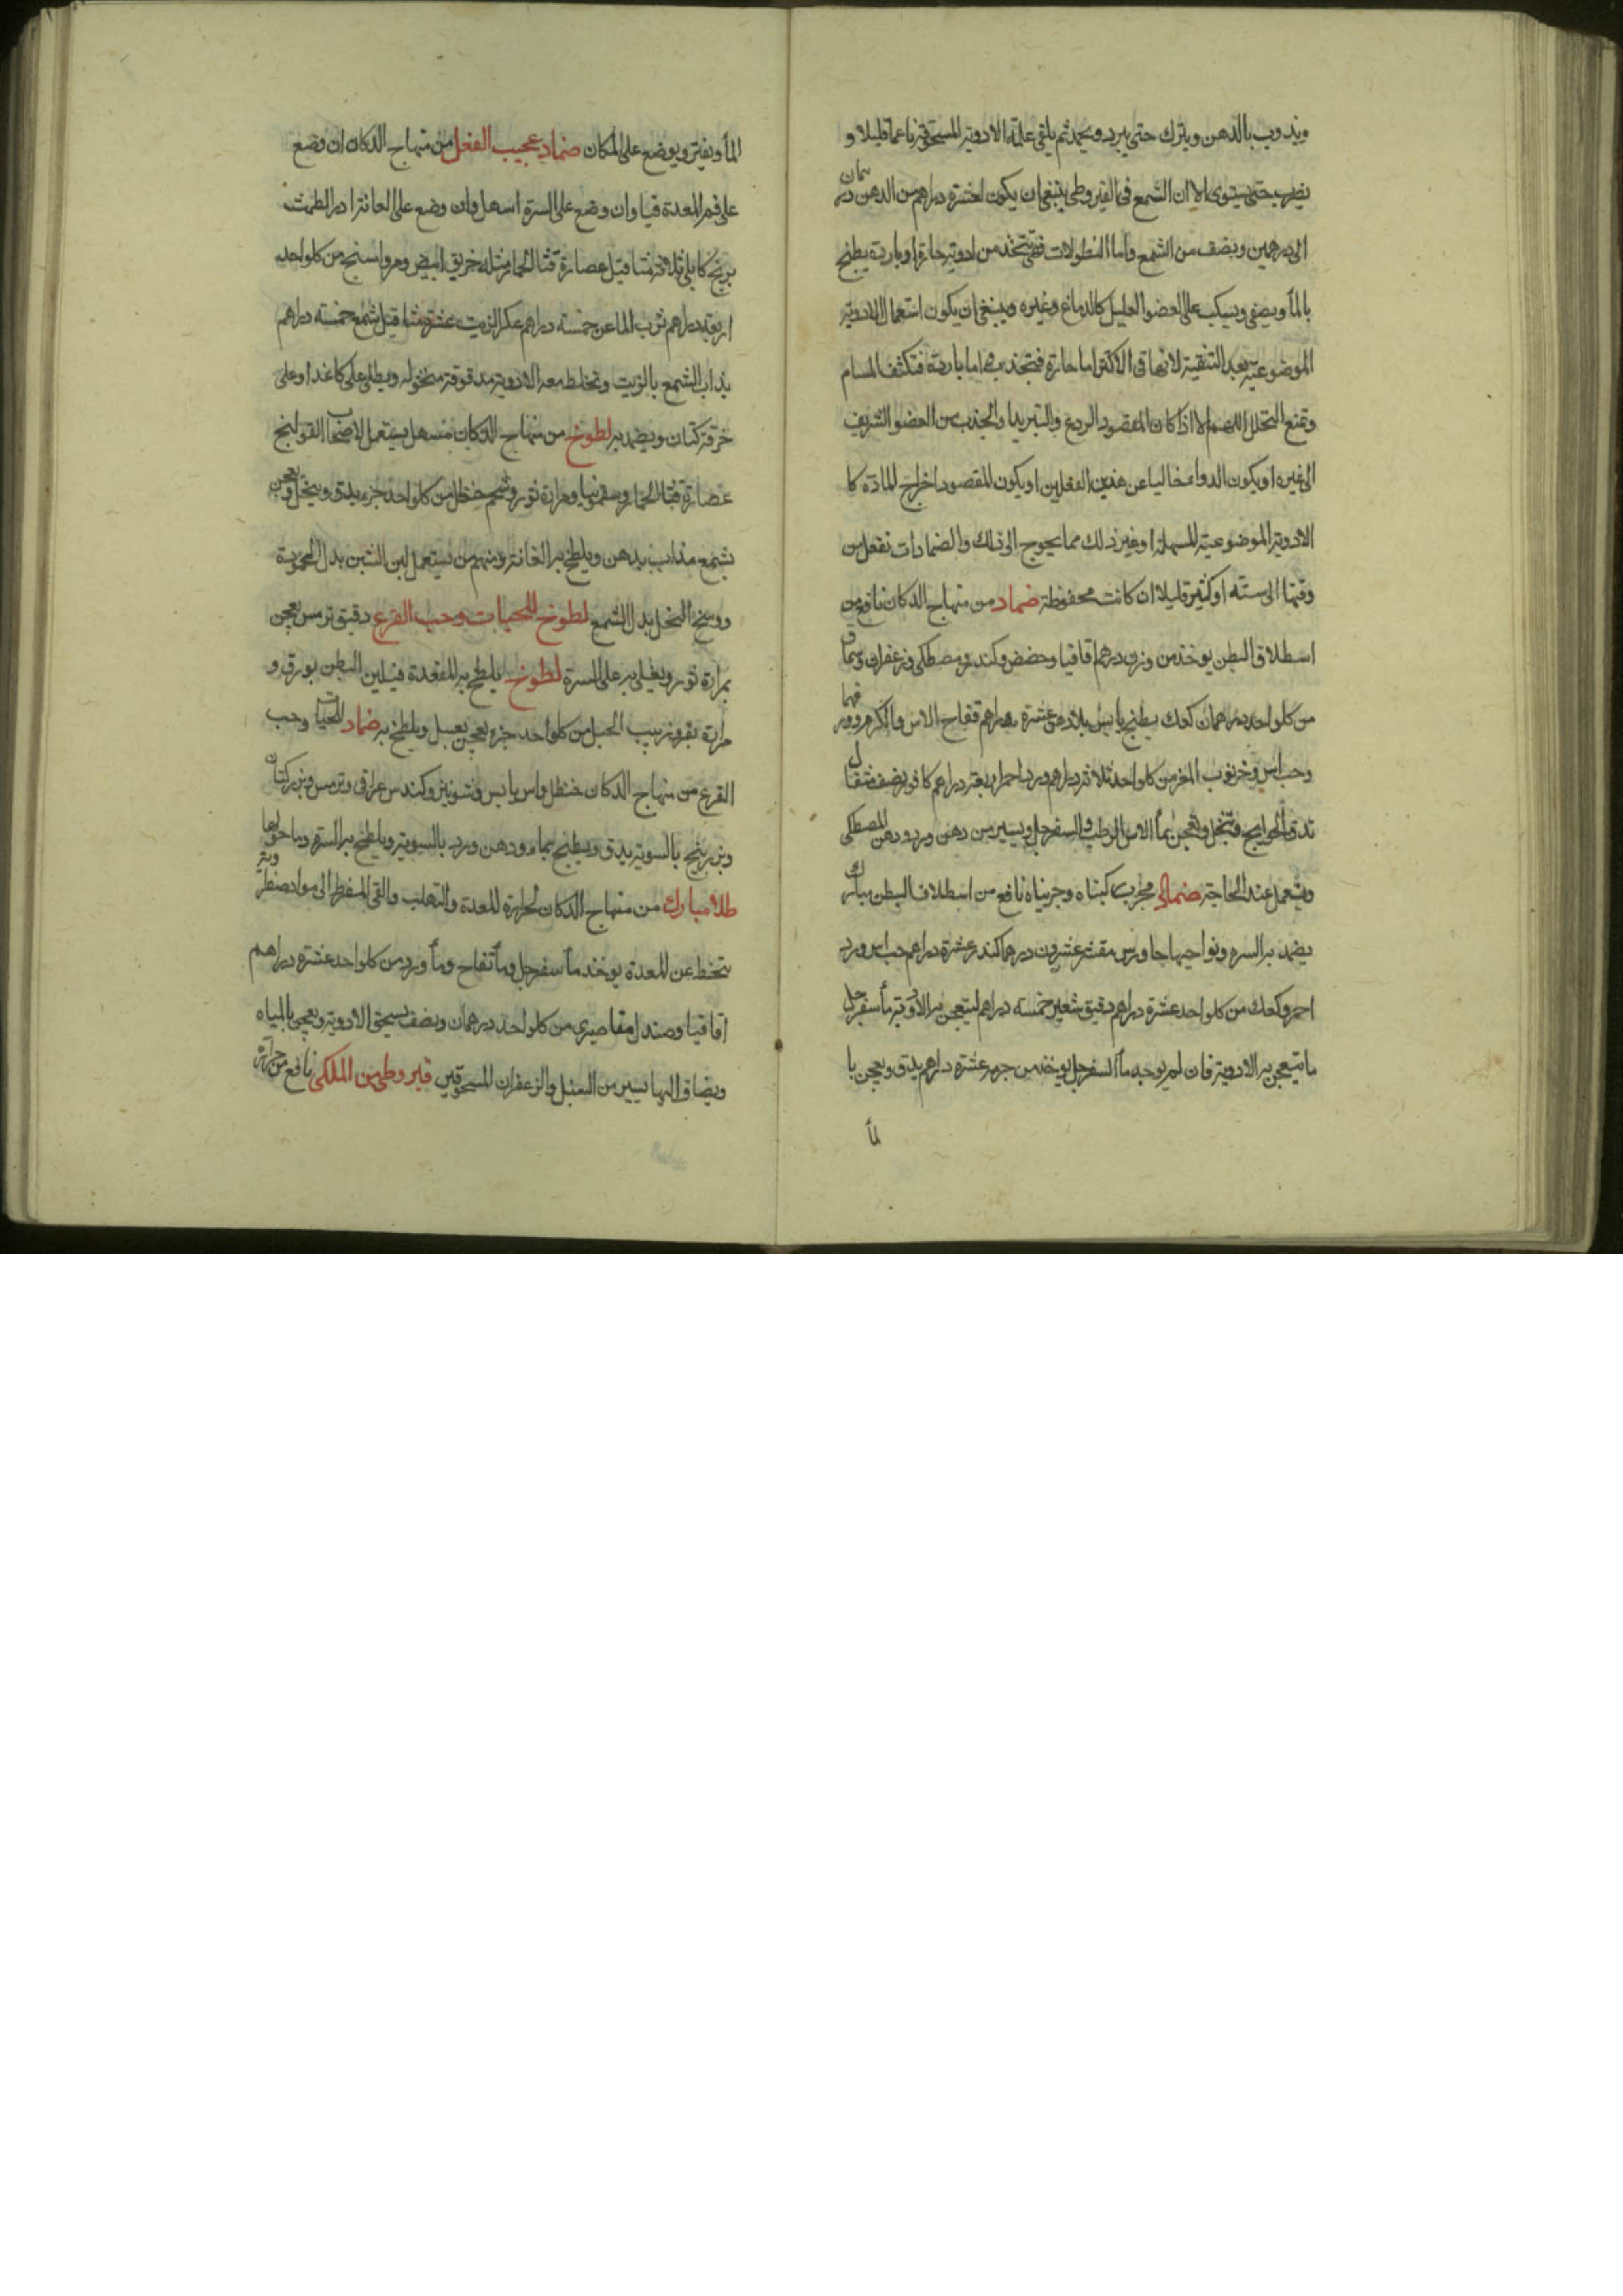 ويذوب بالدهن ويترك حتى يبرد ويجمد ثم يلقى عليه الادوية المسحوقة ناعما قليلا و
يضرب حتى يستوى الا ان الشمع فى القيروطى ينبغى ان يكون لعشرة دراهم من الدهن درهمان
الى درهمين ونصف من الشمع واما النطولات فهى تتخذ من ادوية حارة او باردة يطبخ
بالماء ويصفى ويسكب على العضو العليل كالدماغ وغيره وينبغى ان يكون استعمال الادوية
الموضوعية بعد التنقية لانها فى الاكثر اما حارة فتجذب واما باردة فتكثف المسام
وتمنع التحلل اللهم الا اذا كان المقصود الردع والتبريد والجذب من العضو الشريف
الى غيره او يكون الدواء خاليا عن هذين الفعلين او يكون المقصود اخراج المادة كا
الادوية الموضوعية المسهلة او غير ذلك مما يحوج الى ذلك والضمادات تفعل من
وقتها الى ستة او كثير قليلا ان كانت محفوظة ضماد من منهاج الدكان نافع من
استطلاق البطن يوخذ من وزن درهم اقاقيا وحضض وكندر ومصطكى وزعفران وسماق
من كل واحد درهمان كعك يطبخ يابس بلا دهن عشرة دراهم فقاح الاس والكرم
وحب اس وخرنوب المغز من كل واحد ثلاثة دراهم ورد احمر اربعة دراهم كافور نصف مثقال
تدق الحوايج وتنخل وتعجن بماء الاس الرطب والسفرجل ويسير من دهن ورد ودهن المصطكى
ويستعمل عند الحاجة ضماد مجرب كبناه وجربناه نافع من استطلاق البطن مبارك
يضمد به السره ونواحيها جاورس مقشر عشرون درهما كندر عشرة دراهم حب اس ورد
احمر وكعك من كل واحد عشرة دراهم دقيق شعير خمسة دراهم ليتعجن به الادوية ماء سفرجل
ما يتعجن به الادوية فان لم يوجد ماء السفرجل يوخذ من جرمه عشرة دراهم يدق ويعجن با
لماء
الماء ويفتر ويوضع على المكان ضماد عجيب الفعل من منهاج الدكان ان وضع
على فم المعدة قيا وان وضع على السرة اسهل وان وضع على العانة ادر الطمث
برنج كابلى ثلاثة مثاقيل عصارة قثا الحمار مثله خربق ابيض ومرواسنج من كل واحد
اربعة دراهم تربد الماعن خمسه دراهم عكر الزيت عشرة مثاقيل شمع خمسه دراهم
يذاب الشمع بالزيت وتخلط معه الادوية مدقوقة منخوله ويطلى على كاغد او على
خرقة كتان ويضمد به لطوخ من منهاج الدكان مسهل يستعمل لاصحاب القولنج
عصارة قثا الحمار وسقمونيا ومرارة ثور وشحم حنظل من كل واحد جزء يدق وينخل ويعجن
بشمع مذاب بدهن ويلطخ به العانة ومنهم من يستعمل لبن التين بدل المحمودة
ووسخ النحل بدل الشمع لطوخ للحيات وحب القرع دقيق ترمس يعجن
بمرارة ثور ويغلى به على السرة لطوخ يلطخ به المقعدة فيلين البطن بورق و
مرارة بقر وزبيب الجبل من كل واحد جزء يعجن بعسل ويلطخ به ضماد للحيات وحب
القرع من منهاج الدكان حنظل واس يابس وشونيز وكندس عراقى وترمس وبزر كتان
وبزر برنج بالسوية يدق ويطبخ بماء ودهن ورد بالسوية ويلطخ به السرة وما حولها
طلا مبارك من منهاج الدكان لحرارة المعدة والتهلب والقى المفرط الى مواد صفراوية
تتحط عن المعدة يوخذ ماء سفرجل وماء تفاح وماء ورد من كل واحد عشرة دراهم
اقاقيا وصندل مقاصيرى من كل واحد درهمان ونصف تسحق الادوية ويعجن بالمياه
ويضاف اليها يسير من السنبل والزعفران المسحوقين قيروطى من الملكى نافع من حرارة